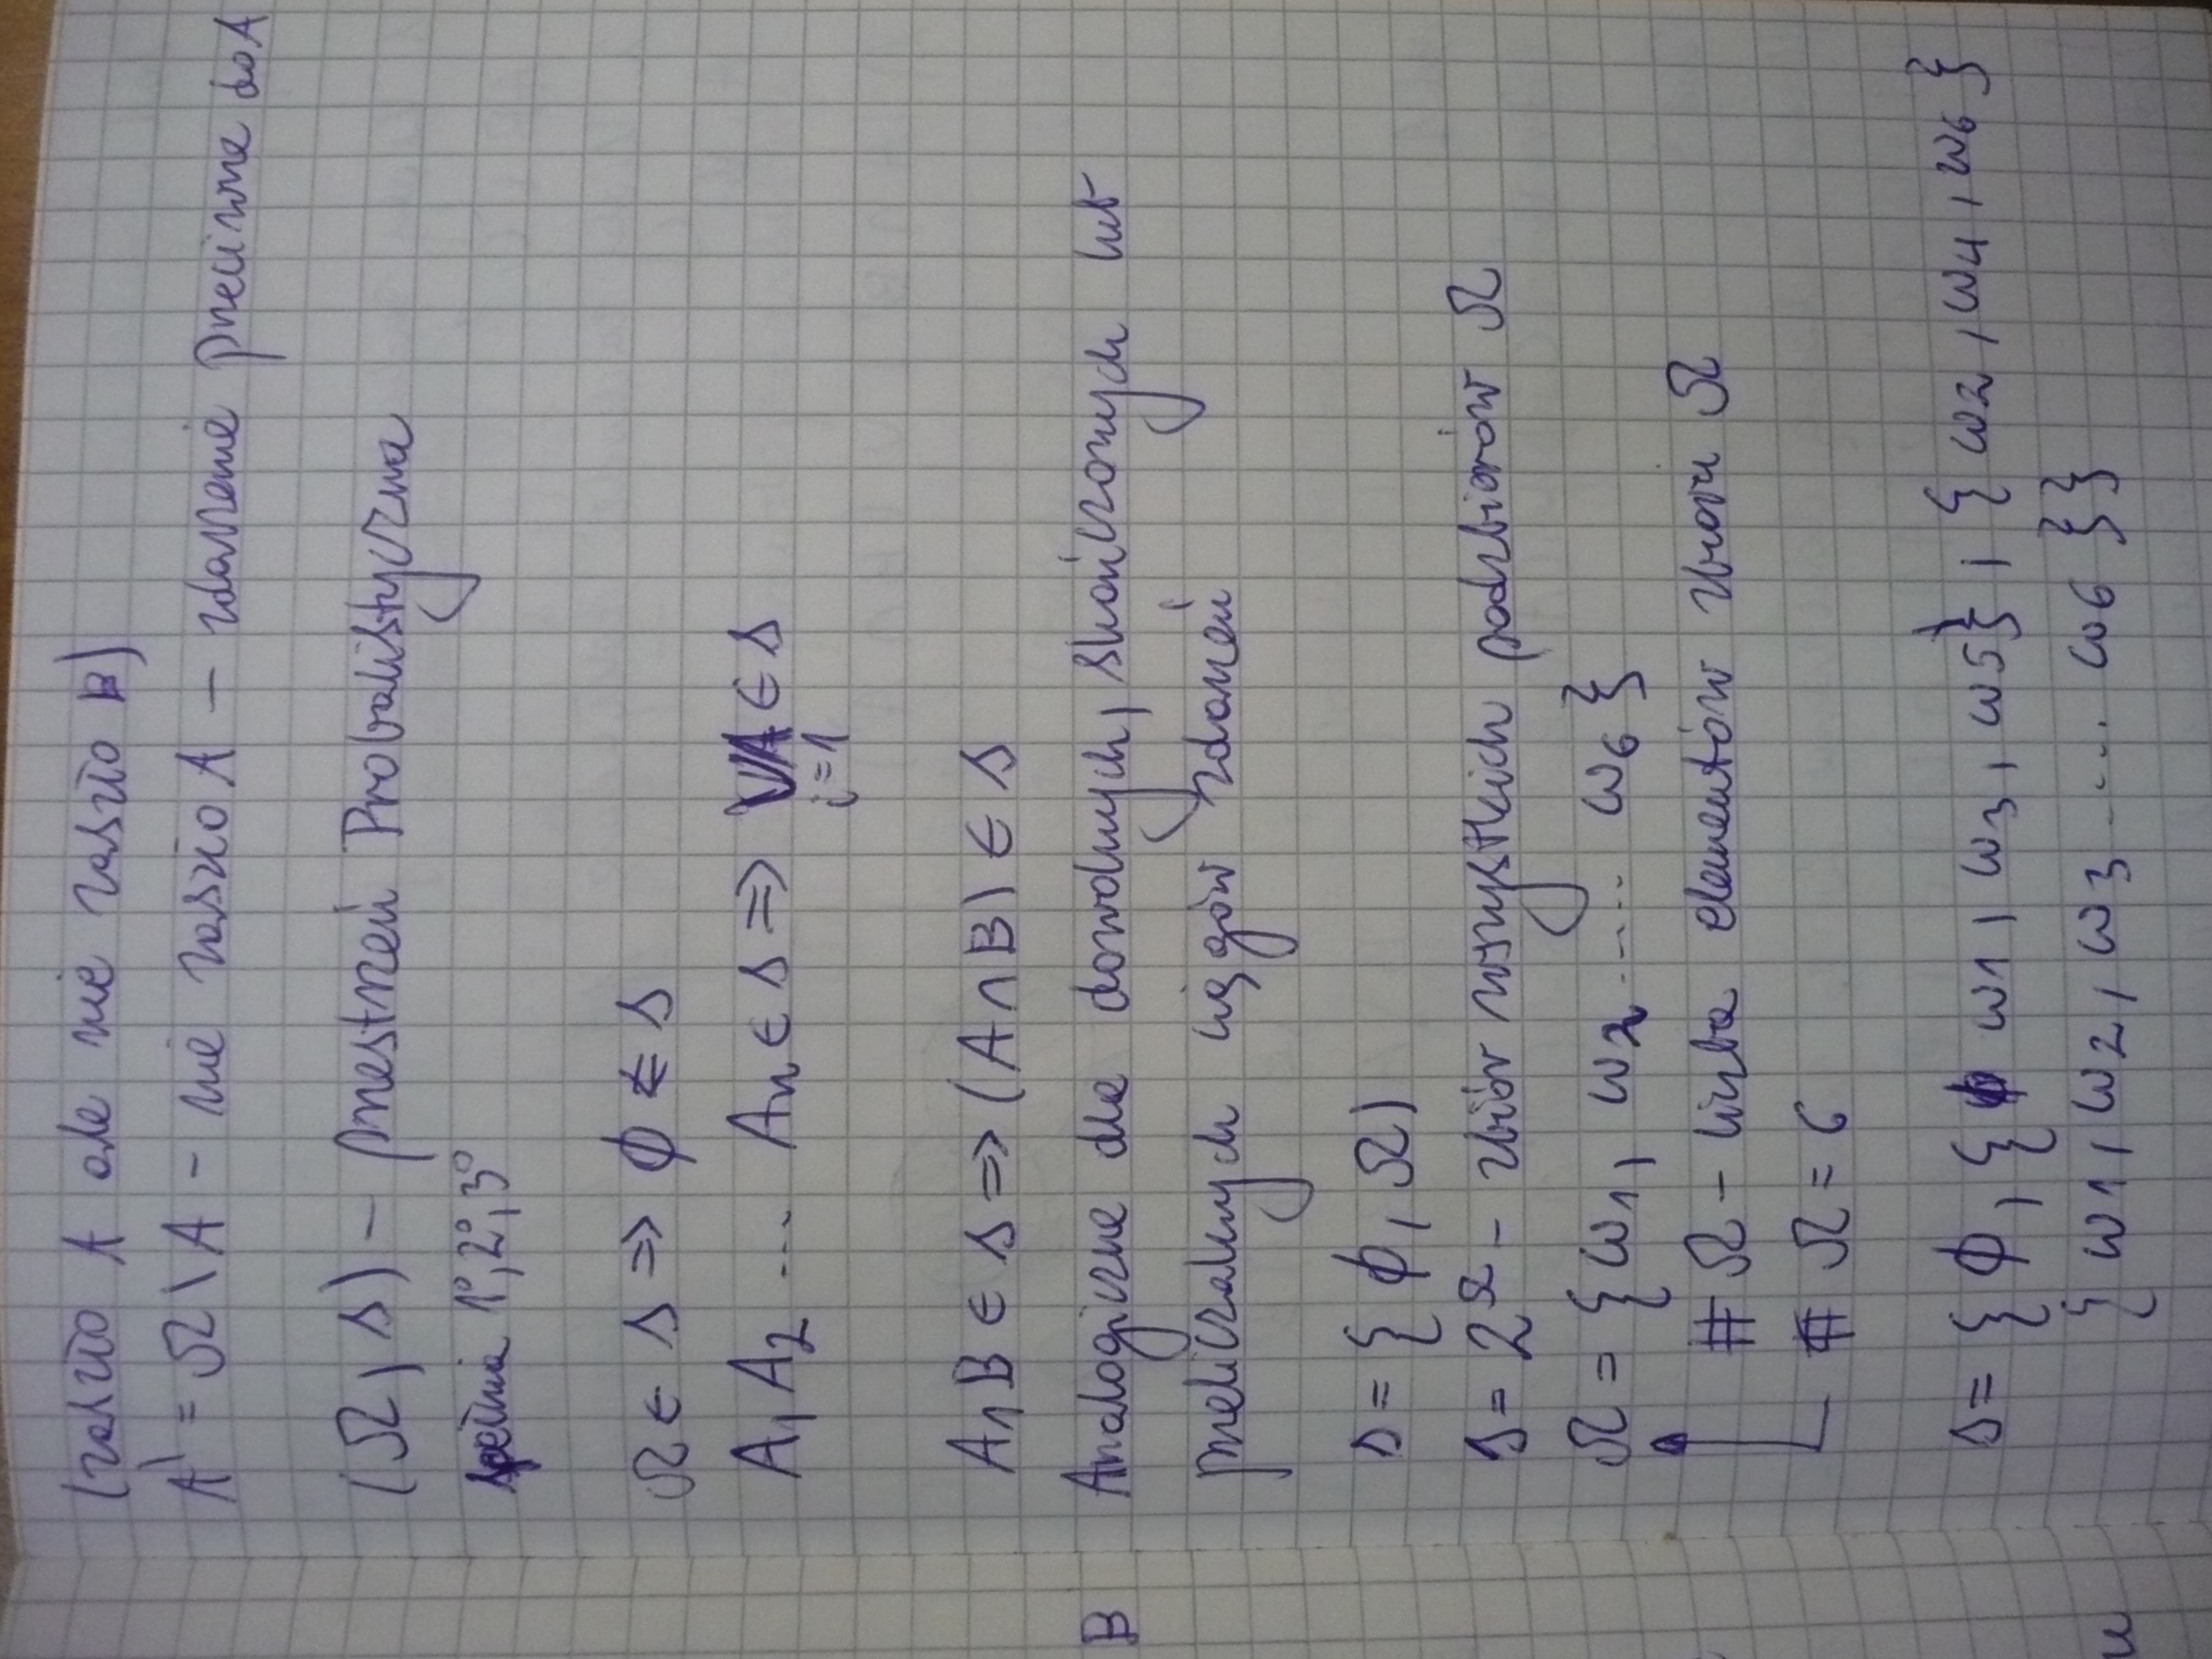 (zaszło A ale nie zaszło B)
A' = Ω \ A - nie zaszło A - zdarzenie przeciwne do A
(Ω, s) - przestrzeń Probalistyczna
spełnia 1°, 2°, 3°
Ω ∈ s => ϕ ∈ s
A1, A2 .... An ∈ s => UA ∈ s
i=1
A, B ∈ s => (A ∩ B) ∈ s
Analogiczne dla dowolnych, skończonych lub
przeliczalnych ciągów zdarzeń
s = { ϕ, Ω)
s = 2^Ω - zbiór wszystkich podzbiorów Ω
Ω = { ω1, ω2 ..... ω6 }
# Ω - liczba elementów zbioru Ω
# Ω = 6
s = { ϕ, { ω1, ω3, ω5}, { ω2, ω4, ω6 }
{ ω1, ω2, ω3 ..... ω6 }}
B
u